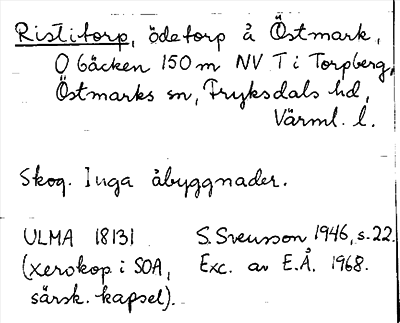 Ristitorp, ödetorp å Östmark,
O bäcken 150 m NV T i Torpberg,
Östmarks sn, Fryksdals hd,
Värml. l.
Skog. Inga åbyggnader.
ULMA 18131 S. Svensson 1946, s. 22.
(xerokop i SOA, Exc. av E.Å. 1968.
särsk. kapsel).